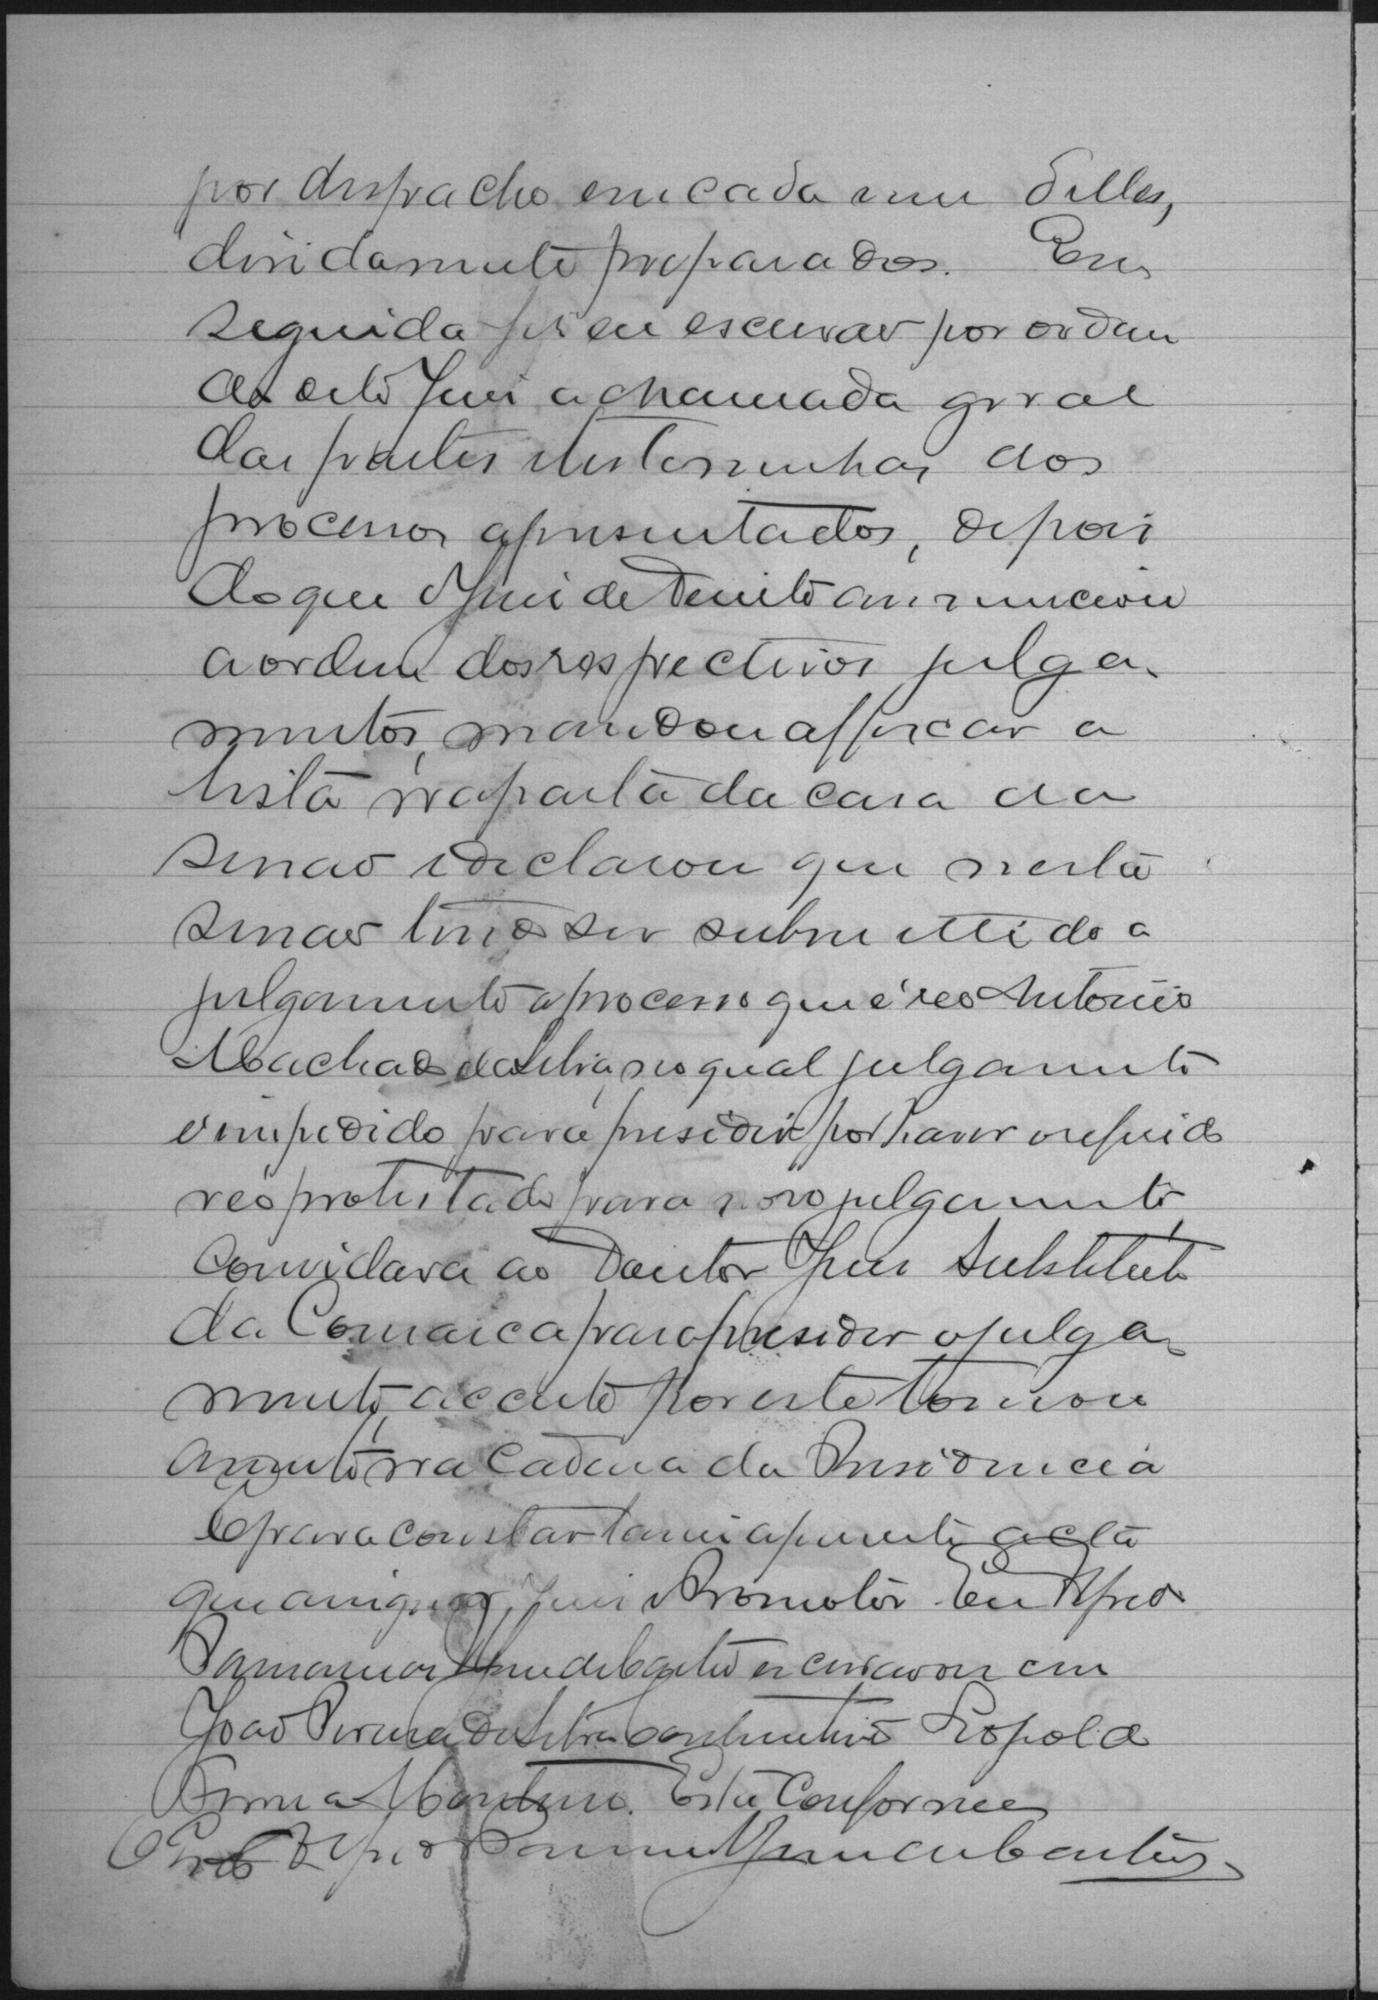 por despacho em cada um delles,
devidamente preparados. Em
seguida fis eu escrivão por ordem
do dito Juis a chamada geral
das partes e testemunhas dos
processos apresentados, depois
do que o Juis de Direito annunciou
a ordem dos respectivos julga
mentos, mandou affixar a
lista na porta da casa da
sessão e declarou que nesta
sessão tendo ser submettido a
julgamento o processo que é reo Antonio
Machado da Silva, no qual julgamento
é impedido para presidir por haver o referido
réo protestado para novo julgamento,
convidava ao Doutor Juis Substituto
da Comarca para presidir o julga
mento, acceito por este tomou
assento na Cadeira da Presidencia
E para constar lavrei a presente acta
que assignão, Juis e Promotor. Eu Alfredo
escrivão a escrevi
João Pereira da Silva Leopoldo
Monteiro. Está Conforme
O Escr. Alfredo